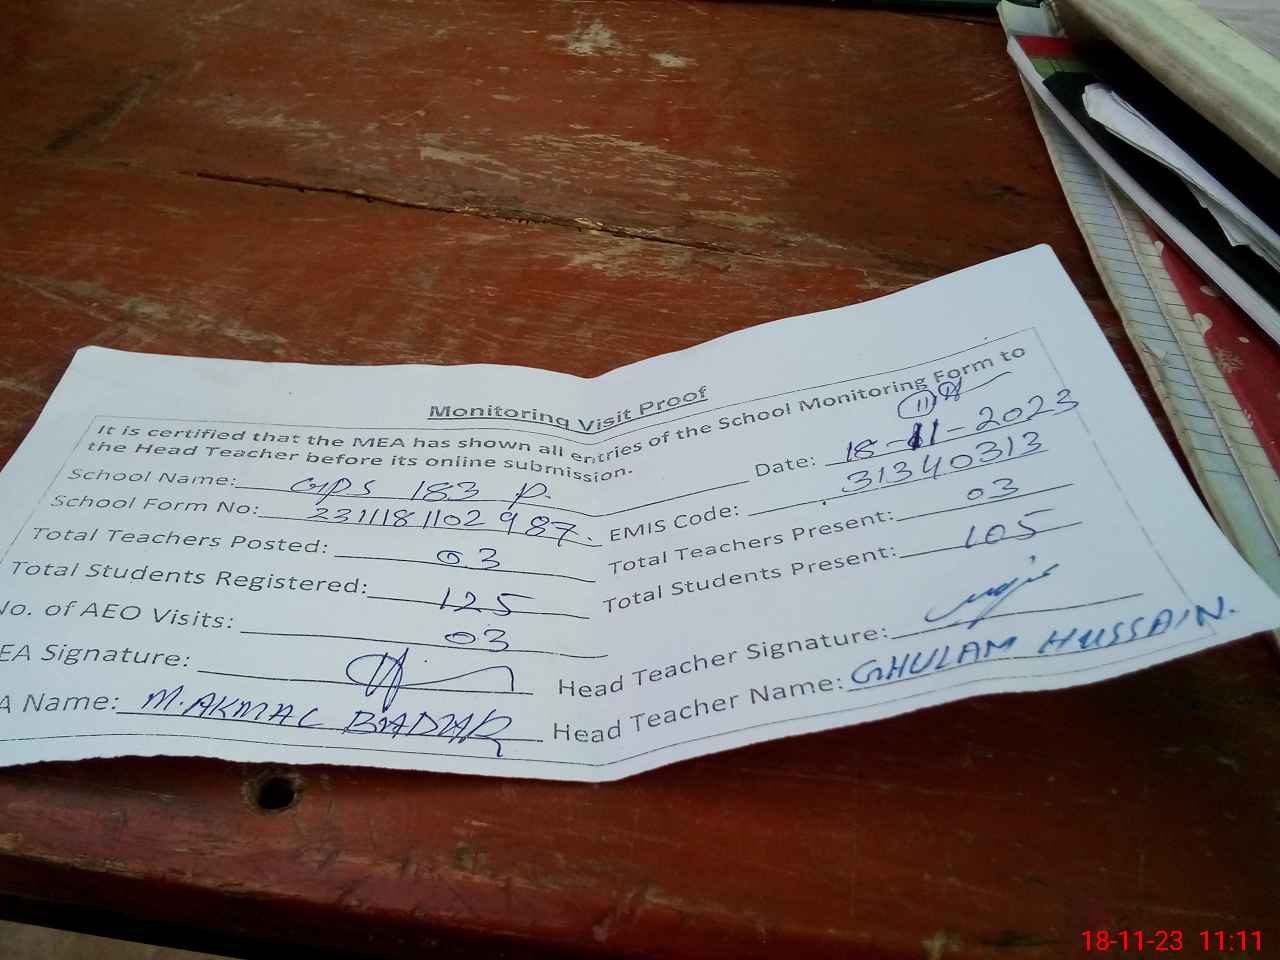 Monitoring Visit Proof
It is certified that the MEA has shown all entries of the School Monitoring Form to
the Head Teacher before its online submission.
11
School Name: GPS 183 P. Date: 18-11-2023
School Form No: 2311181102987. EMIS Code: 31340313
Total Teachers Posted: 03 Total Teachers Present: 03
Total Students Registered: 125 Total Students Present: 105
No. of AEO Visits: 03
EA Signature: Head Teacher Signature:
A Name: M. AKMAL Head Teacher Name: GHULAM HUSSAIN.
18-11-23 11:11